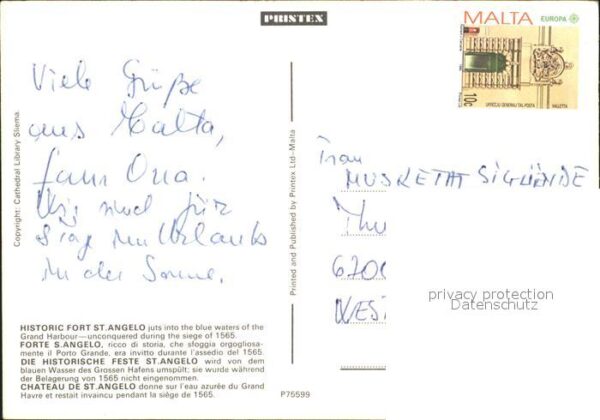 PRINTEX
MALTA EUROPA
10c
UFFICCJU GENERALI TAL-POSTA VALLETTA
Viele Grüße
aus Malta,
Wir sind für
Tage im Urlaub
in der Sonne.
Frau
MUSKETAT
670
WEST
privacy protection
Datenschutz
Copyright: Cathedral Library Sliema.
Printed and Published by Printex Ltd-Malta
HISTORIC FORT ST.ANGELO juts into the blue waters of the
Grand Harbour—unconquered during the siege of 1565.
FORTE S.ANGELO, ricco di storia, che sfoggia orgogliosa-
mente il Porto Grande, era invitto durante l'assedio del 1565.
DIE HISTORISCHE FESTE ST.ANGELO wird von dem
blauen Wasser des Grossen Hafens umspült; sie wurde während
der Belagerung von 1565 nicht eingenommen.
CHATEAU DE ST.ANGELO donne sur l'eau azurée du Grand
Havre et restait invaincu pendant la siège de 1565.
P75599